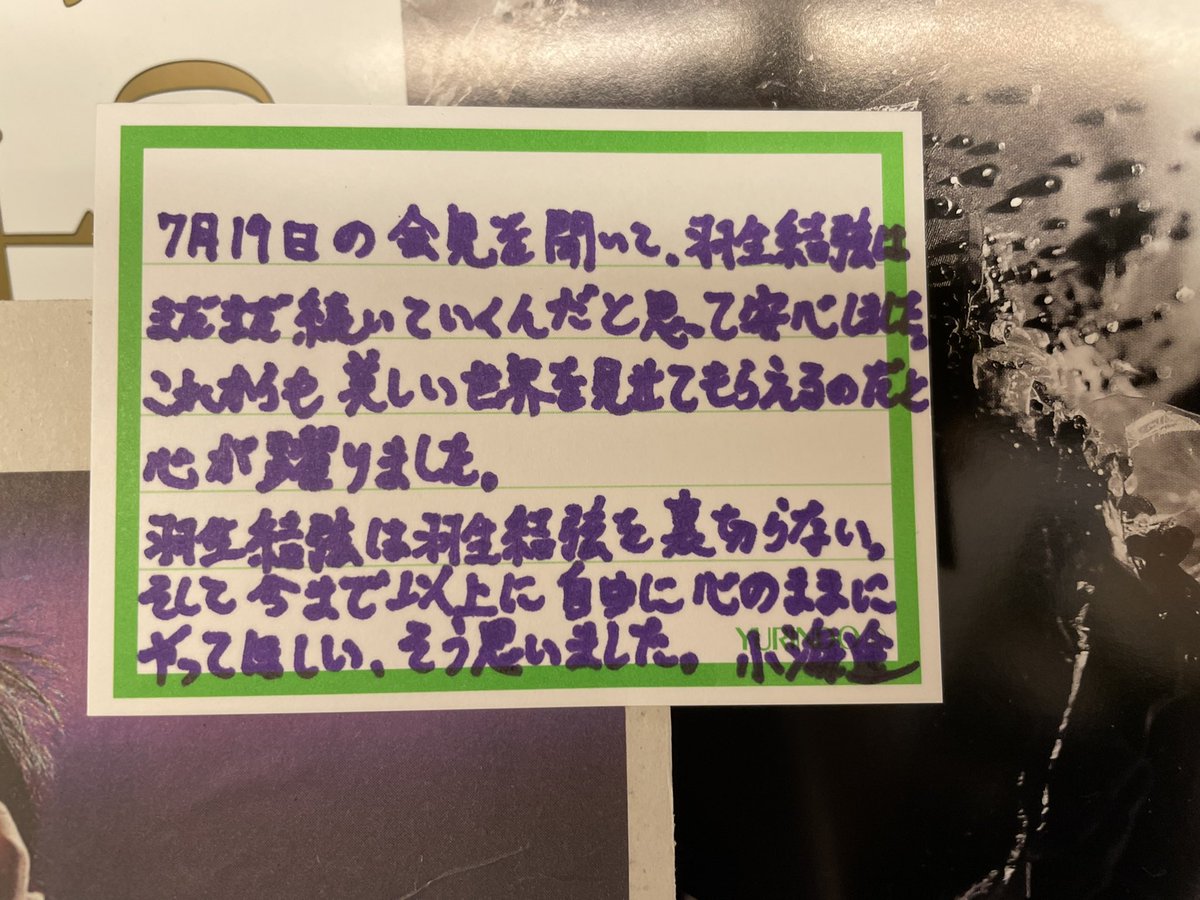 7月19日の会見を聞いて、羽生結弦は
まだまだ続いていくんだと思って安心しました。
これからも美しい世界を見せてもらえるのだと
心が躍りました。
羽生結弦は羽生結弦を裏切らない。
そして今まで以上に自由に心のままに
やってほしい、そう思いました。
YURINDO